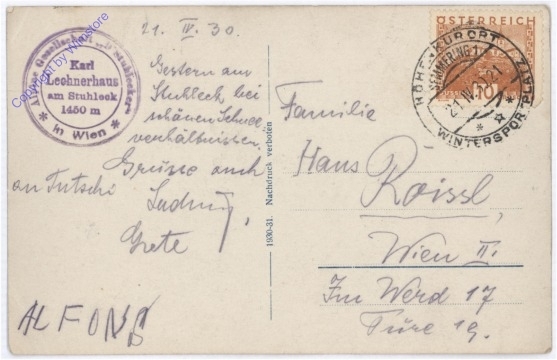 21. IV. 30.
Gestern am
Stuhleck bei
schönen Schnee
verhältnissen.
Grüsse auch
an Tutschi
Ludwig,
Grete
ALFONS
Alpine Gesellschaft "D' Stuhlecker"
Karl
Lechnerhaus
am Stuhleck
1450 m
in Wien
Copyright by Winstore
1930-31. Nachdruck verboten
ÖSTERREICH
10
HÖHENKURORT
SEMMERING 1
21.IV.
WINTERSPORTPLATZ
Familie
Hans
Roissl,
Wien II.
Im Werd 17
Türe 19.